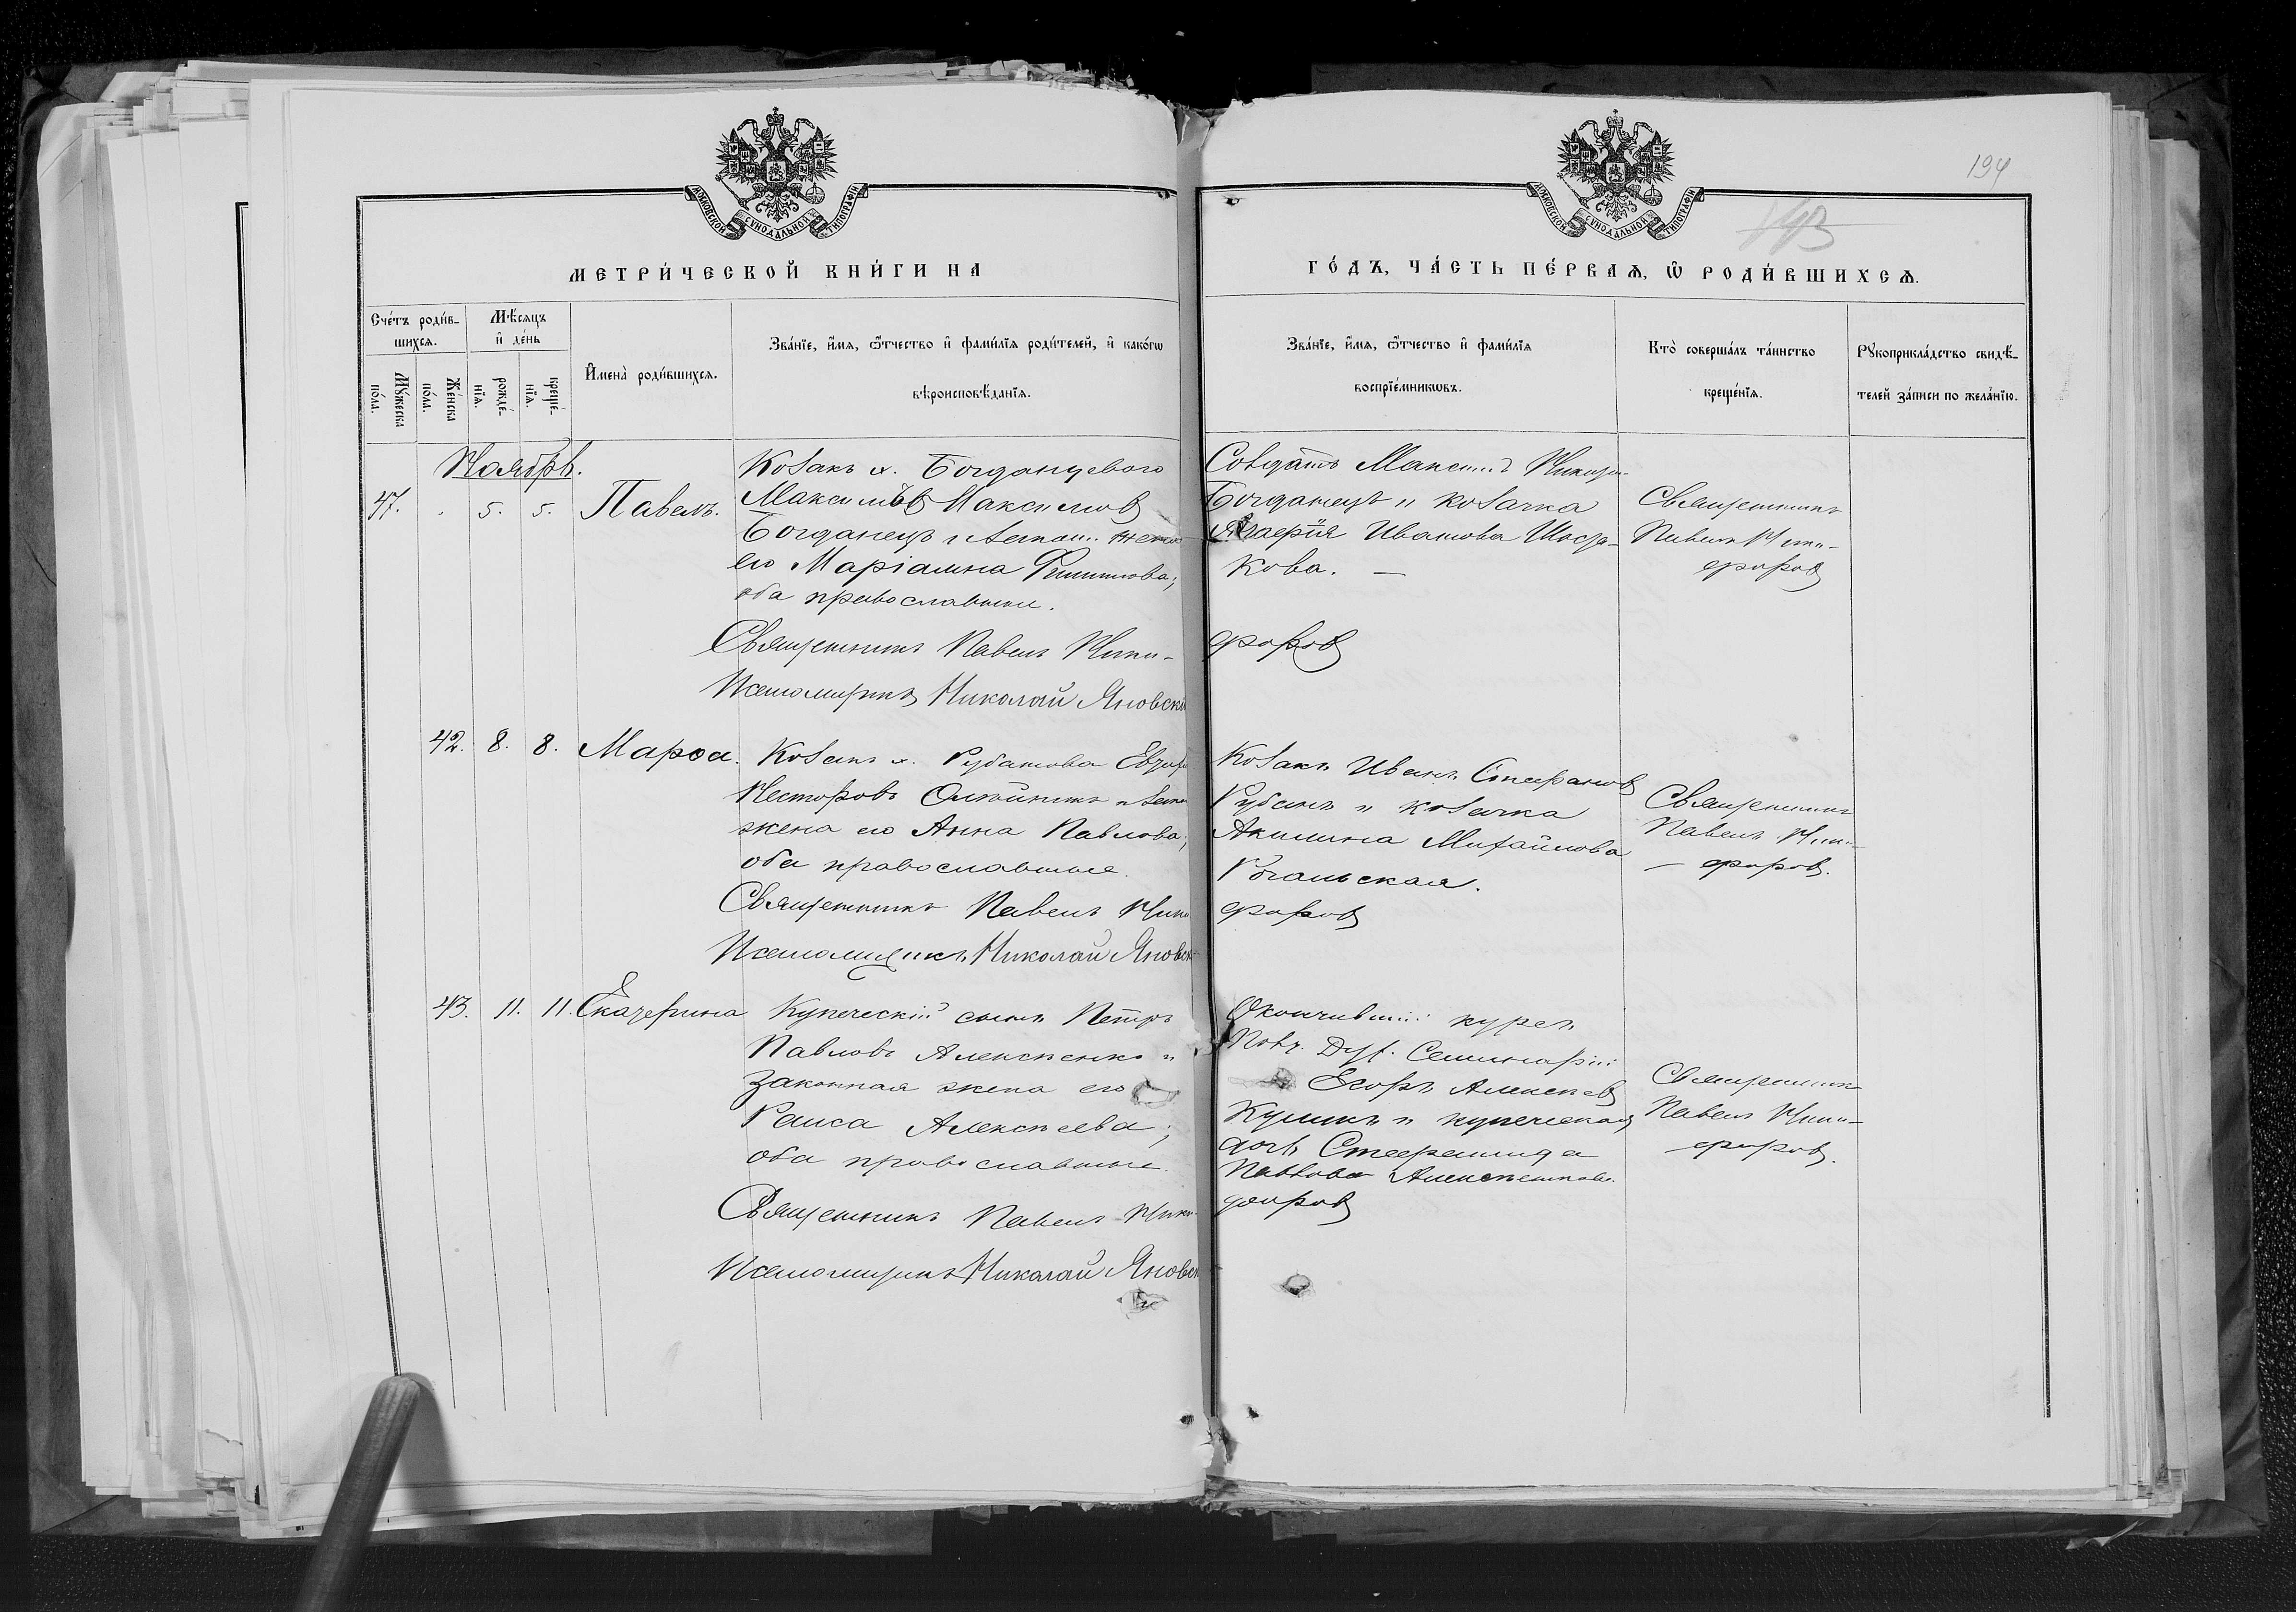 194
МОСКОВСКОЙ СѴНОДАЛЬНОЙ ТИПОГРАФІИ
МОСКОВСКОЙ СѴНОДАЛЬНОЙ ТИПОГРАФІИ
МЕТРИ́ЧЕСКОЙ КНИ́ГИ НА
ГО́ДЪ, ЧА́СТЬ ПЕ́РВАѦ, Ѿ РОДИ́ВШИХСѦ.
Сче́тъ роди́в-
шихсѧ.
Мѣ́сѧцъ
и҆ де́нь
Мꙋ́жеска
по́ла.
Же́нска
по́ла.
рожде́-
нїѧ.
креще́-
нїѧ.
И҆мена̀ роди́вшихсѧ.
Зва́нїе, и҆́мѧ, ѻ҆́тчество и҆ фами́лїѧ роди́телей, и҆ како́гѡ
вѣроисповѣ́данїѧ.
Зва́нїе, и҆́мѧ, ѻ҆́тчество и҆ фами́лїѧ
воспрїе́мникѡвъ.
Кто̀ соверша́лъ та́инство
креще́нїѧ.
Рꙋкоприкла́дство свидѣ́-
телей за́писи по жела́нїю.
Ноябрь.
47. 5. 5. Павелъ.
Козакъ х. Богданцевого
Максимъ Максимов
Богданецъ и
его Маріамна Филиппова;
оба православные.
Священникъ Павелъ Ники-
Псаломщикъ Николай Яновскі
Солдатъ Максимъ
Богданецъ и козачка
Иванова
кова. —
форов
Священникъ
Павелъ Ники-
форов
42. 8. 8. Марѳа.
Козакъ х. Рубанова
Несторовъ Олѣйникъ и
жена его Анна Павлова;
оба православные.
Священникъ Павелъ Ники
Псаломщикъ Николай Яновск
Козакъ Иванъ Стефанов
Рубанъ и козачка
Акилина Михайлова
Рогальская.
форов
Священникъ
Павелъ Ники-
— форов.
43. 11. 11. Екатерина
Купеческій сынъ Петръ
Павловъ Алексѣенко и
законная жена его
Раиса Алексѣева;
оба православные.
Священникъ Павелъ Ники-
Псаломщикъ Николай Яновск
Окончившій курсъ
Полт. Дух. Семинаріи
Егоръ Алексѣев
Куликъ и купеческая
дочь Стефанида
Павлова Алексѣенкова.
форов
Священник
Павелъ Ники-
форов.